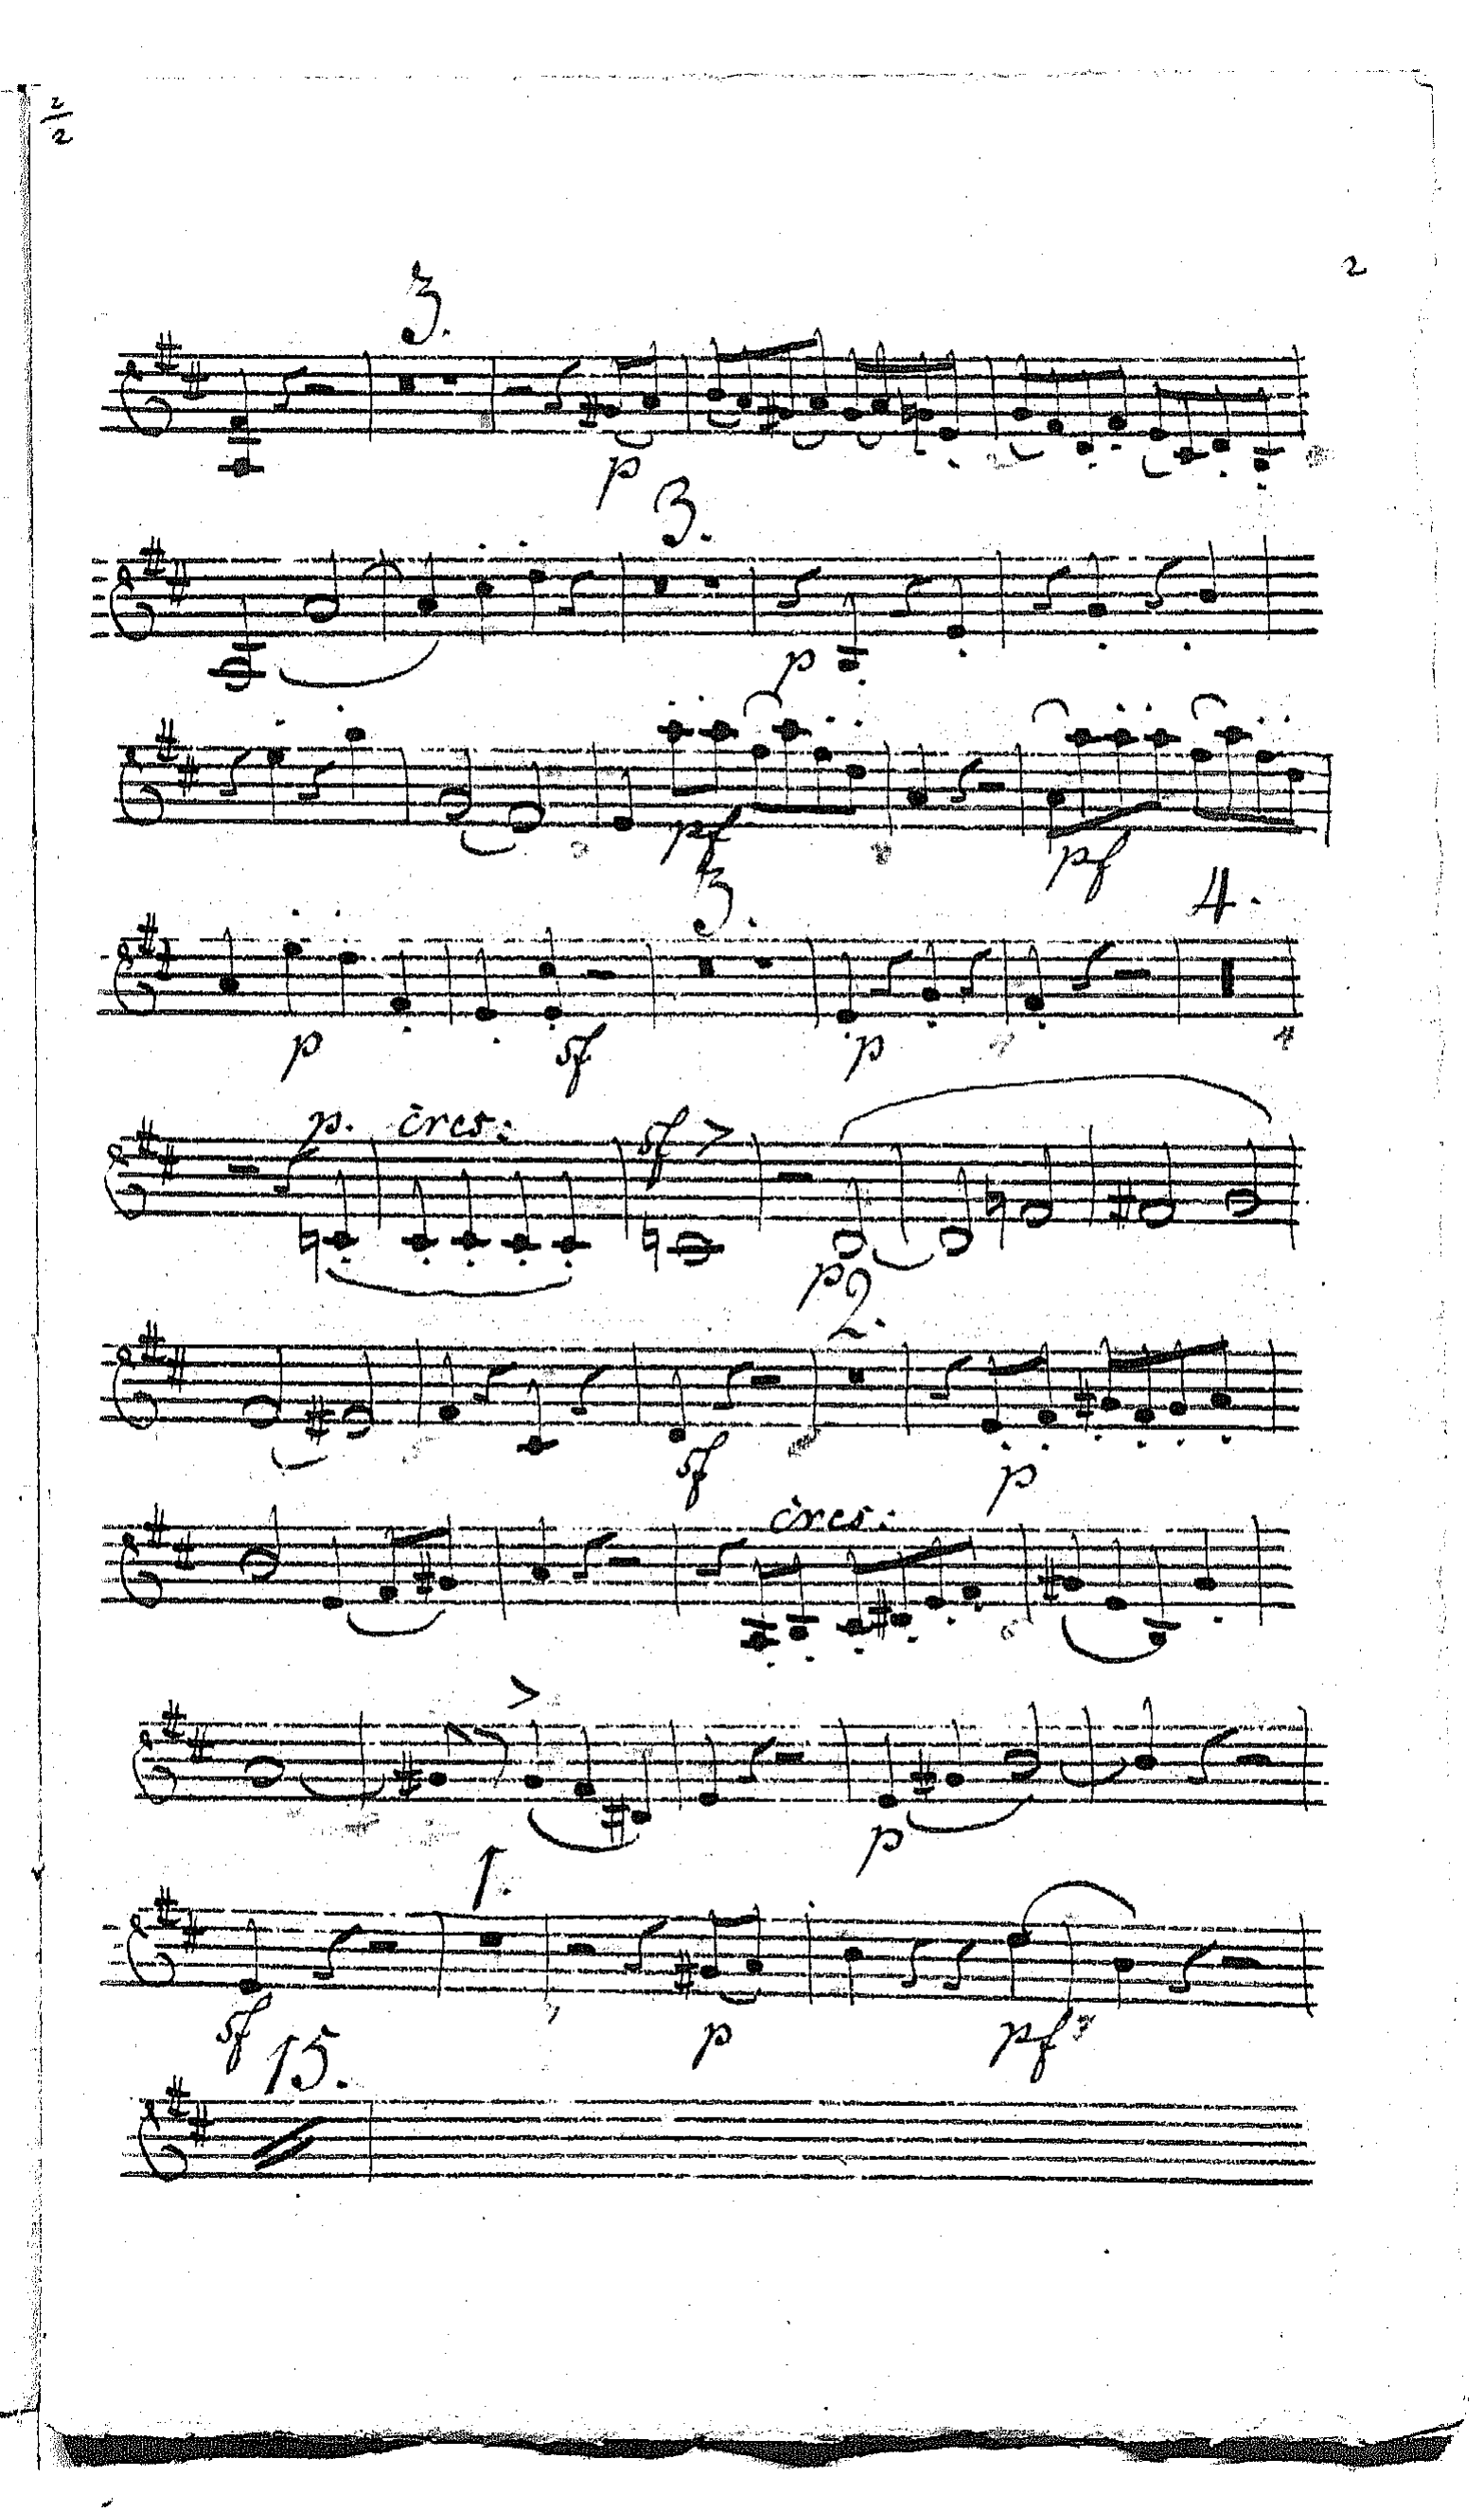 2
2
2
3.
p
3.
p
pf pf
3. 4.
p sf p
p. cres: sf
p
2.
sf p
cres:
p
1.
sf p pf
15.